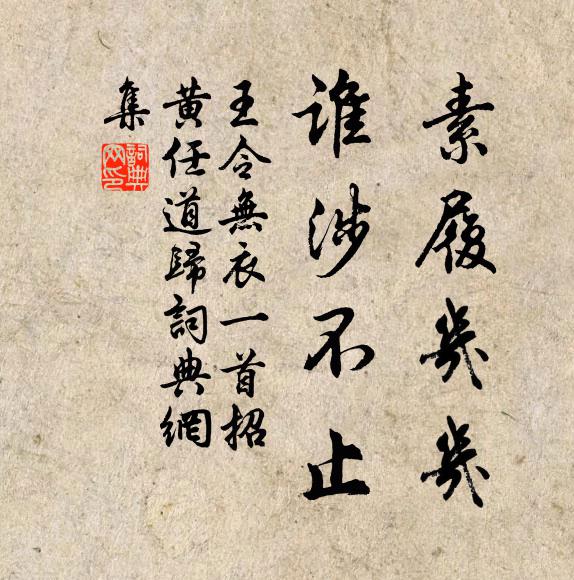 素履幾幾
誰涉不止
王令無衣一首招
黄任道歸詞典網
集
詞典
网印